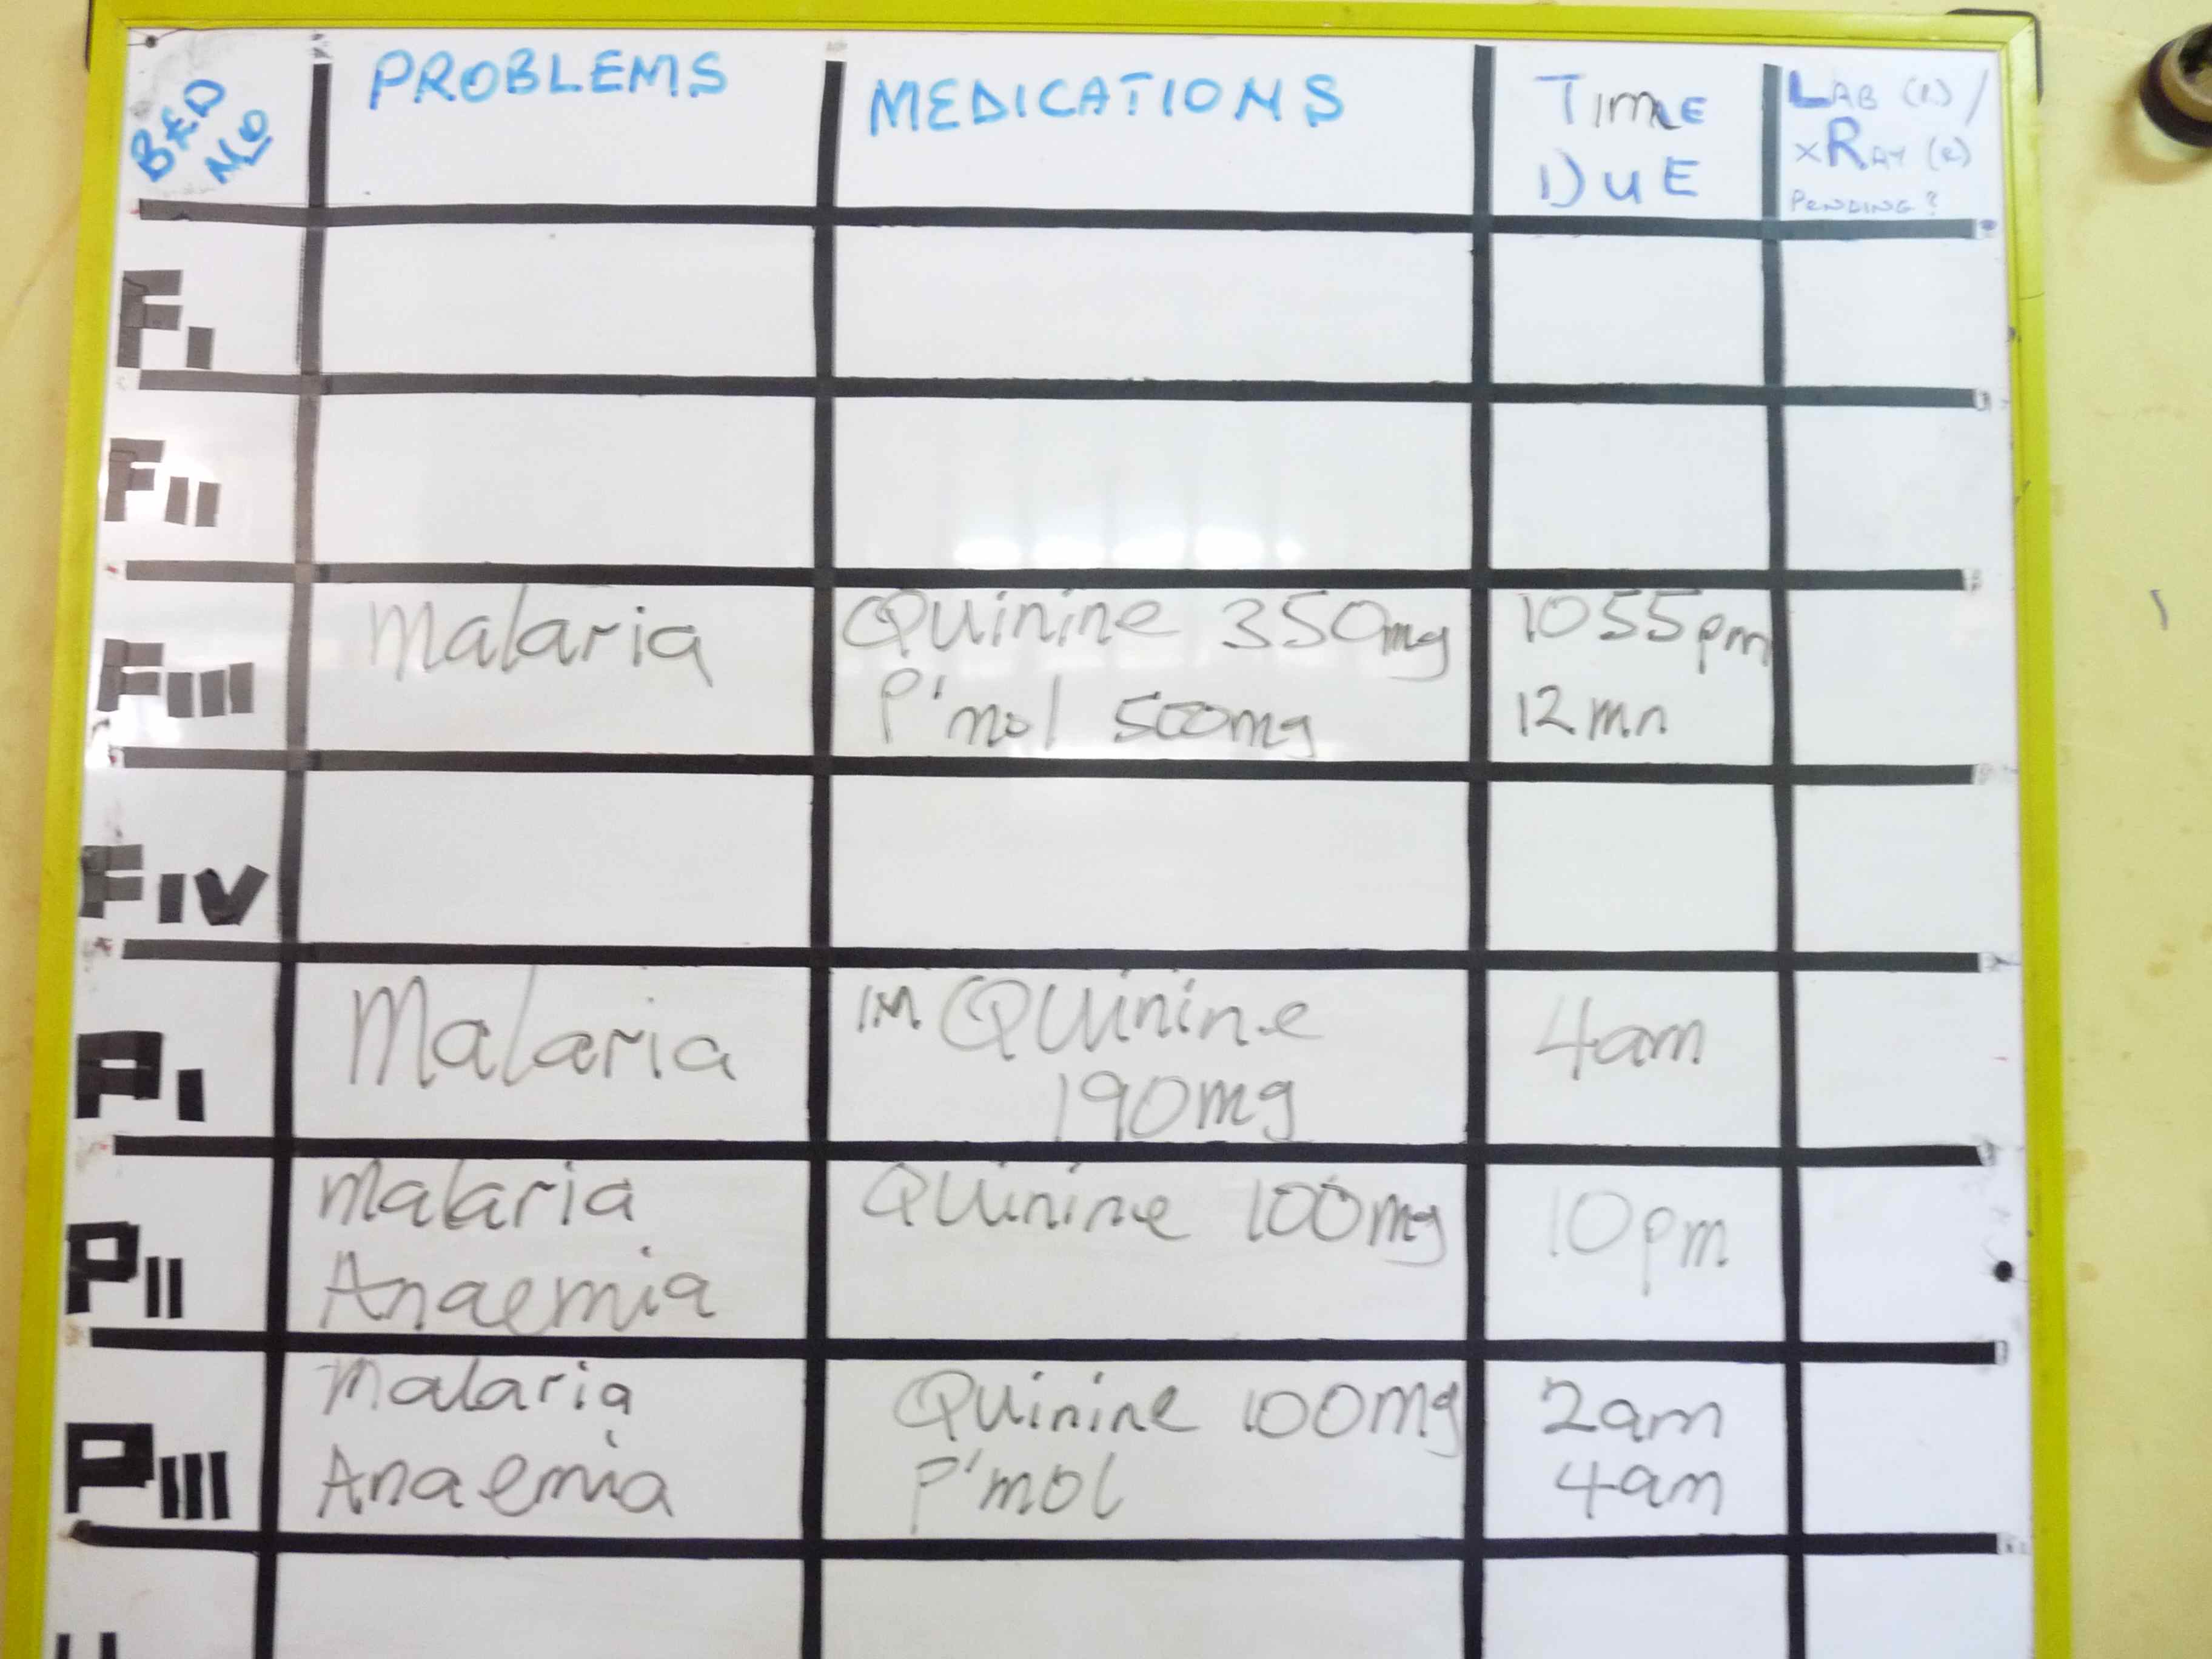 BED No PROBLEMS MEDICATIONS TIME DUE LAB (L) / XRAY (R) PENDING?
FI
FII
FIII Malaria Quinine 350mg 1055pm
P'mol 500mg 12mn
FIV
PI Malaria IM Quinine 4am
190mg
PII Malaria Quinine 100mg 10pm
Anaemia
PIII Malaria Quinine 100mg 2am
Anaemia P'mol 4am